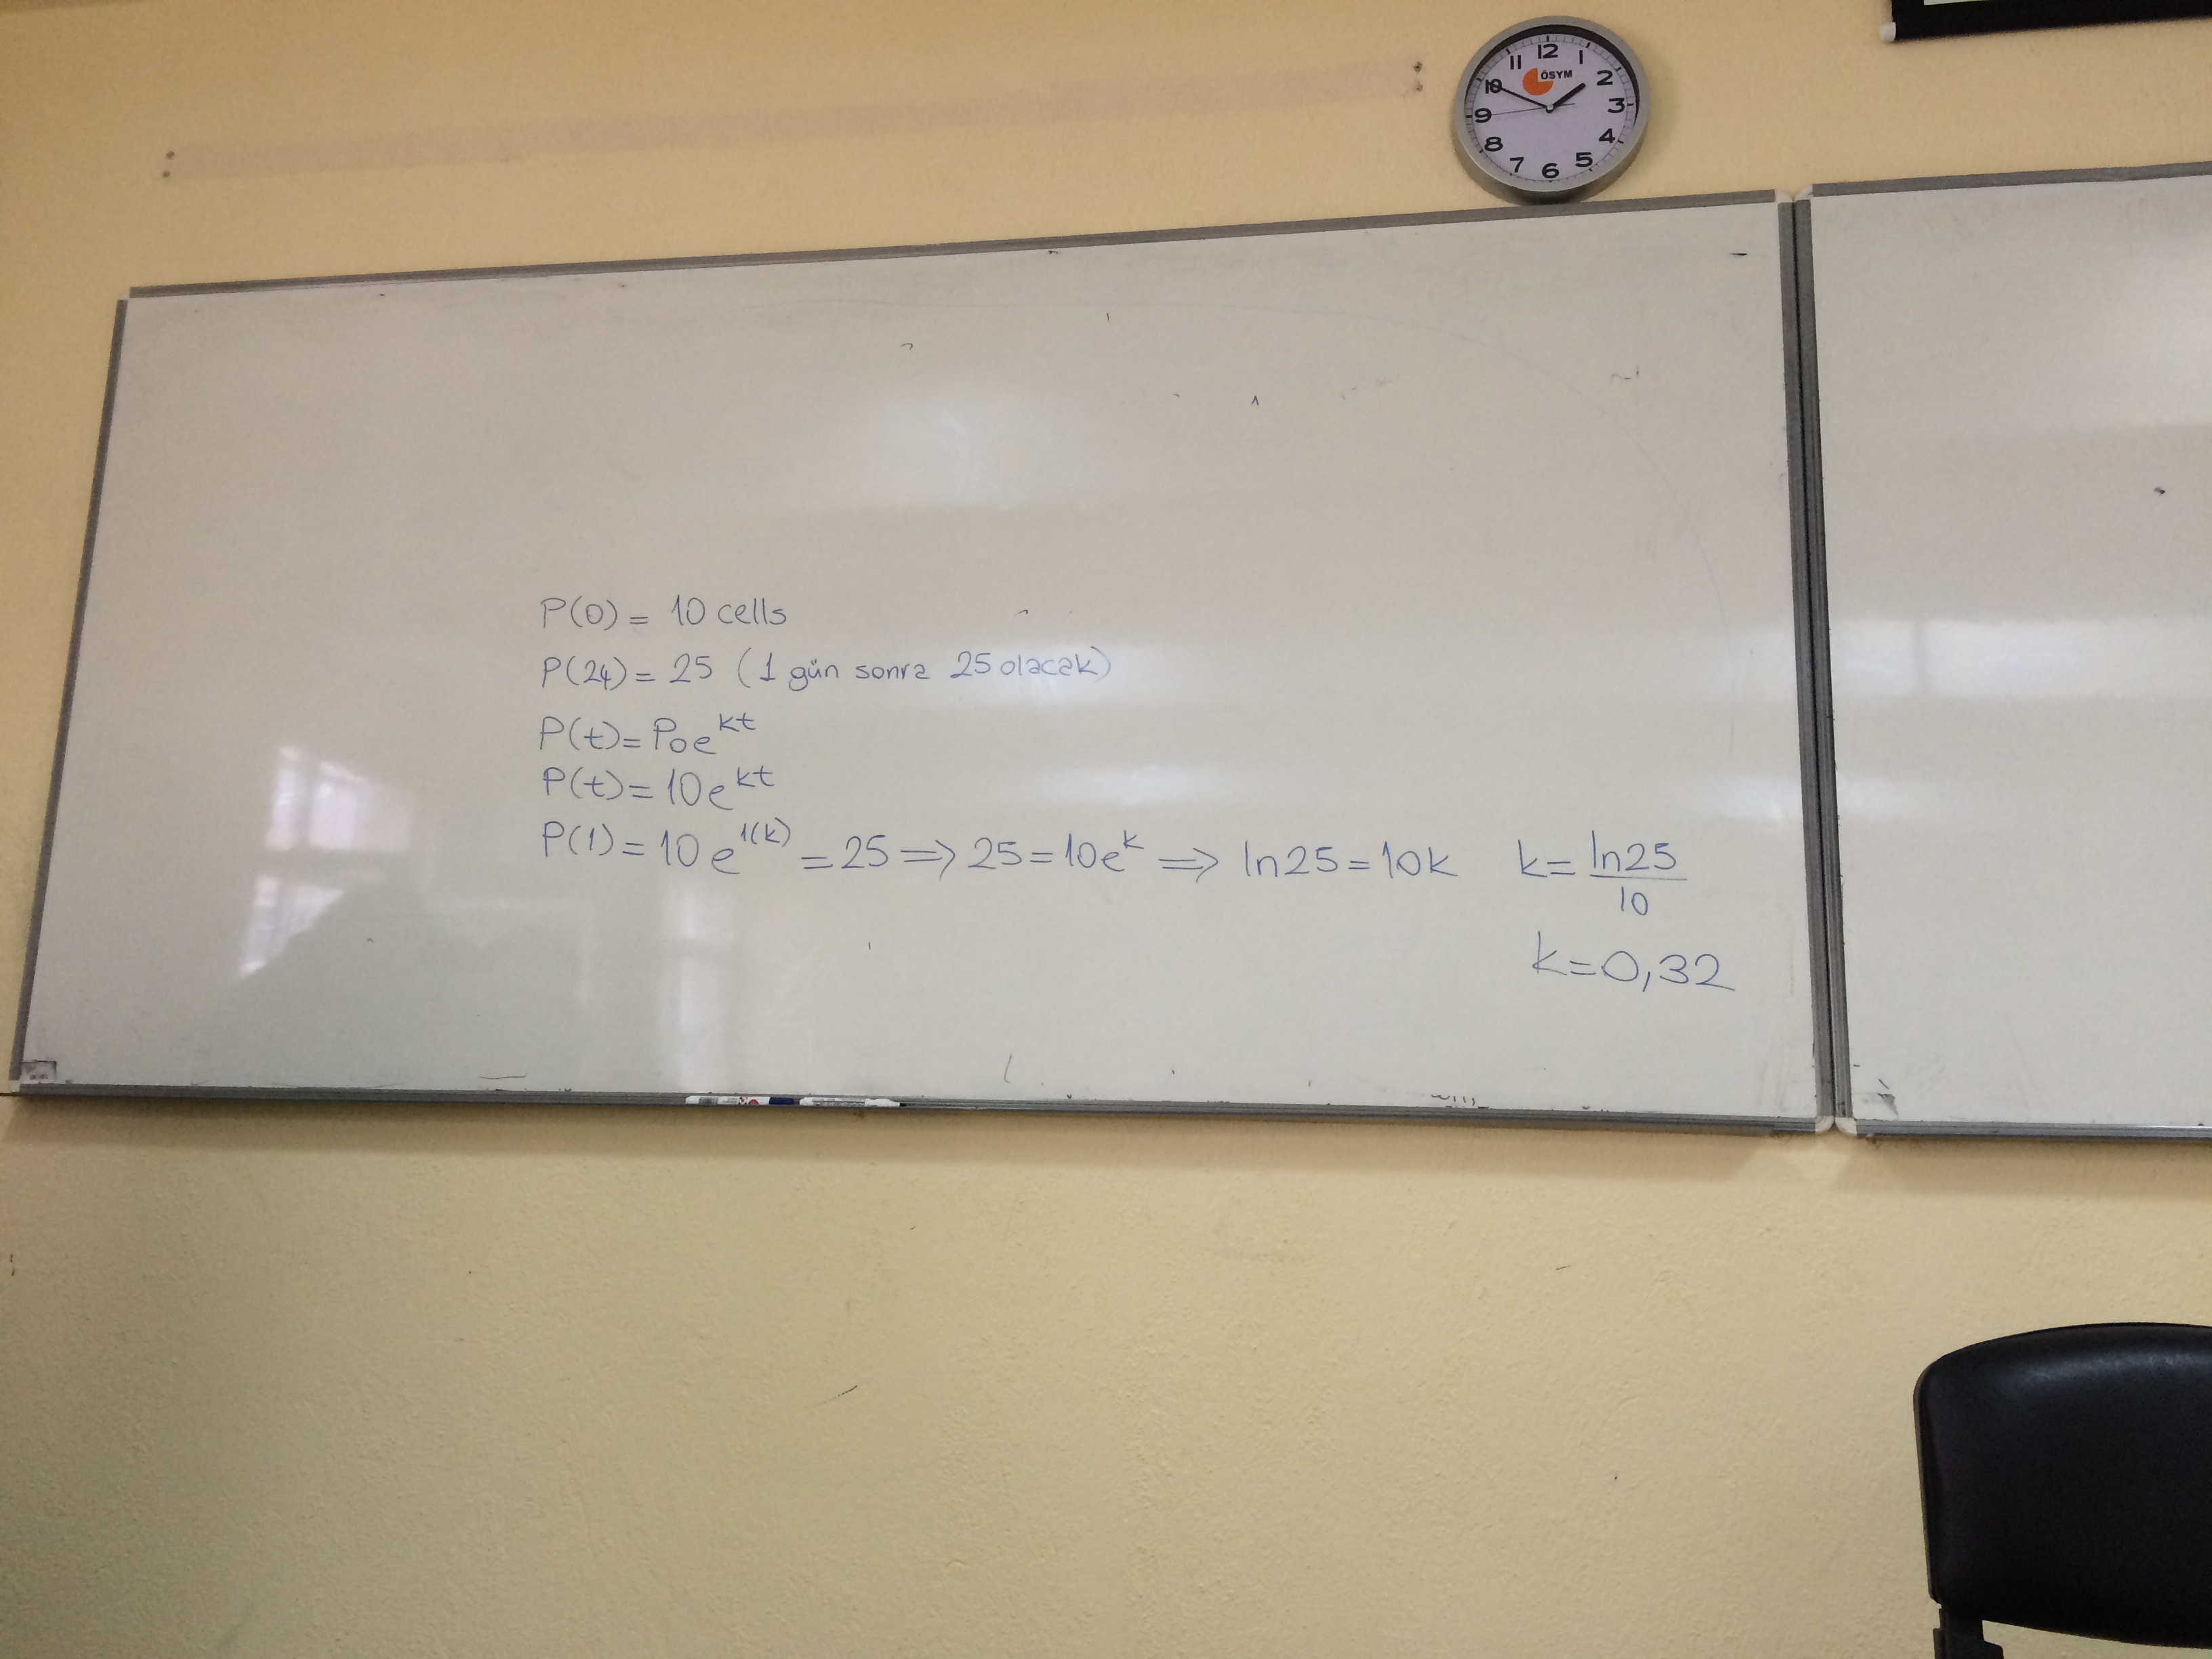 12
1
2
3
4
5
6
7
8
9
10
11
ÖSYM
P(0) = 10 cells
P(24) = 25 (1 gün sonra 25 olacak)
P(t) = P₀e^kt
P(t) = 10e^kt
P(1) = 10e^1(k) = 25 ⇒ 25 = 10e^k ⇒ ln25 = 10k k = ln25/10
k = 0,32